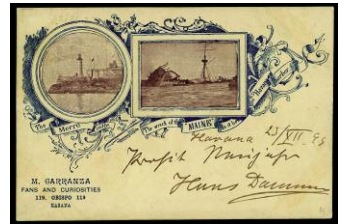 The Morro
The wreck of the "MAINE"
Habana
Havana 23/XII 99
Prosit Neujahr
Hans
M. CARRANZA
FANS AND CURIOSITIES
119, OBISPO 119
HABANA